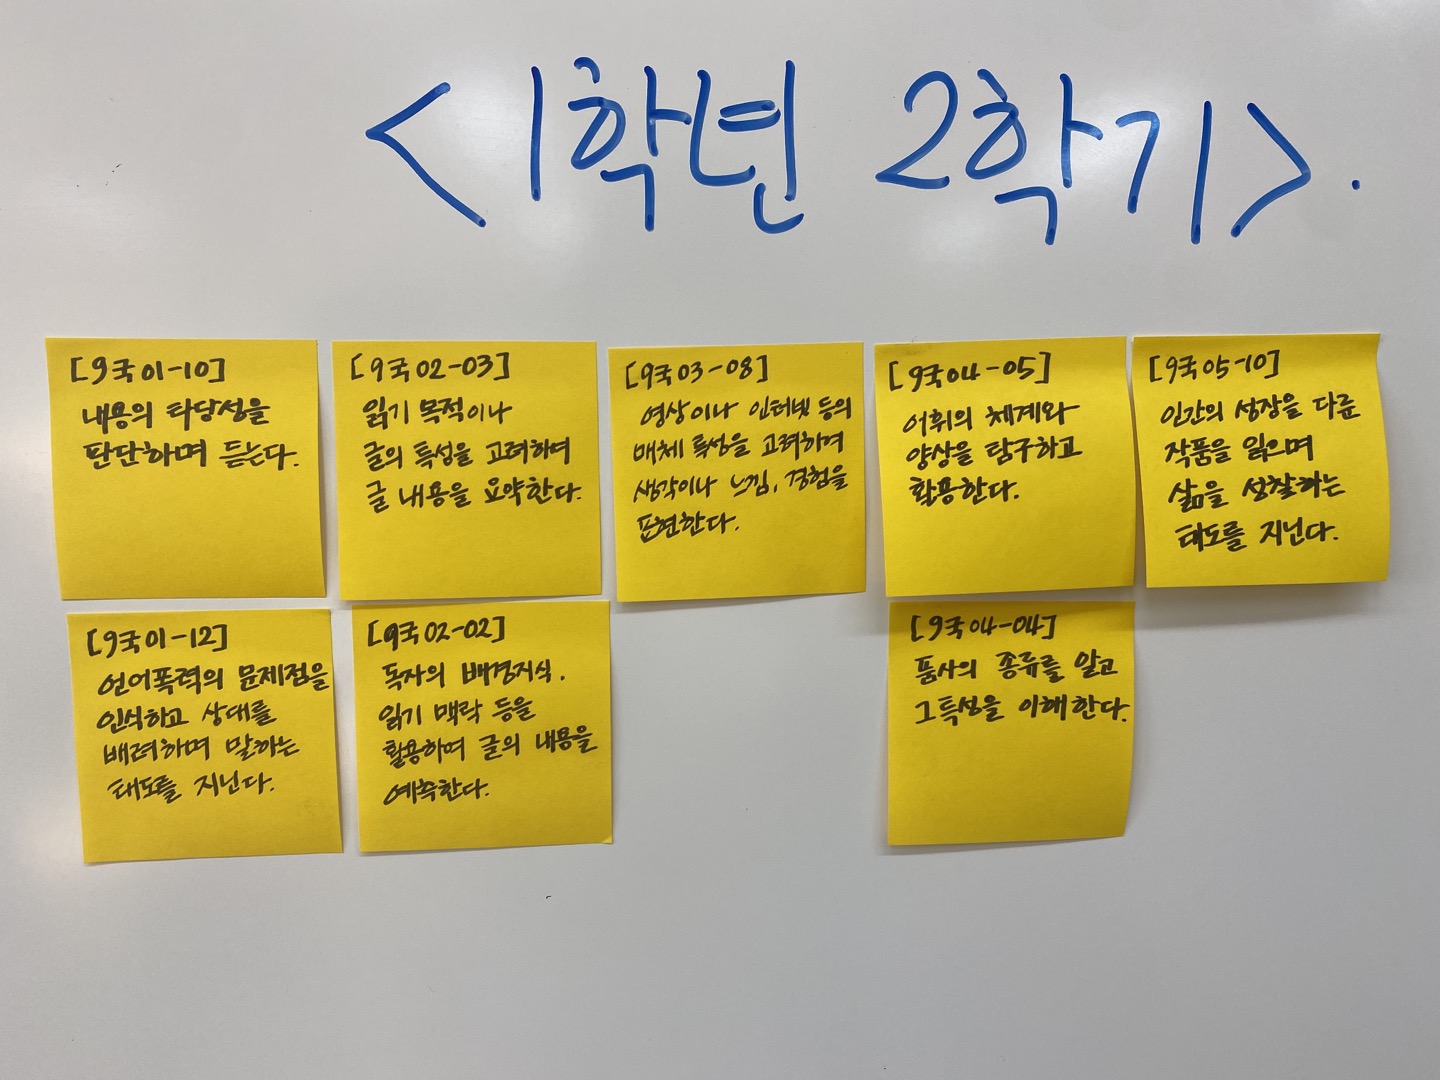 <1학년 2학기>.
[9국01-10]
내용의 타당성을
판단하며 듣는다.
[9국02-03]
읽기 목적이나
글의 특성을 고려하며
글 내용을 요약한다.
[9국03-08]
영상이나 인터넷 등의
매체 특성을 고려하여
생각이나 느낌, 경험을
표현한다.
[9국04-05]
어휘의 체계와
양상을 탐구하고
활용한다.
[9국05-10]
인간의 성장을 다룬
작품을 읽으며
삶을 성찰하는
태도를 지닌다.
[9국01-12]
언어폭력의 문제점을
인식하고 상대를
배려하며 말하는
태도를 지닌다.
[9국02-02]
독자의 배경지식,
읽기 맥락 등을
활용하여 글의 내용을
예측한다.
[9국04-04]
품사의 종류를 알고
그 특성을 이해한다.